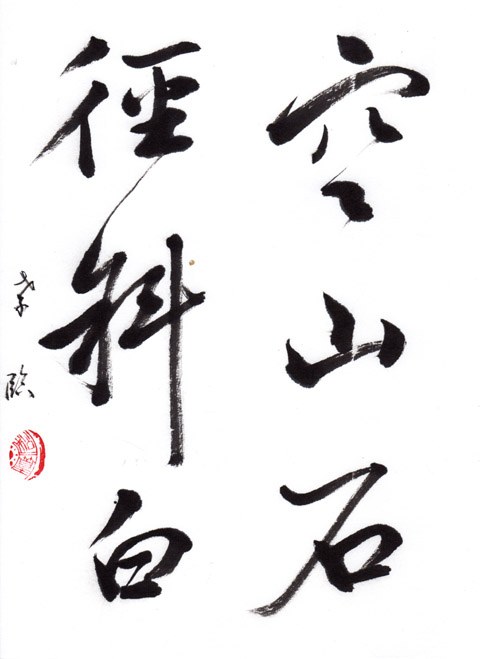 寒山石
徑斜白
臨